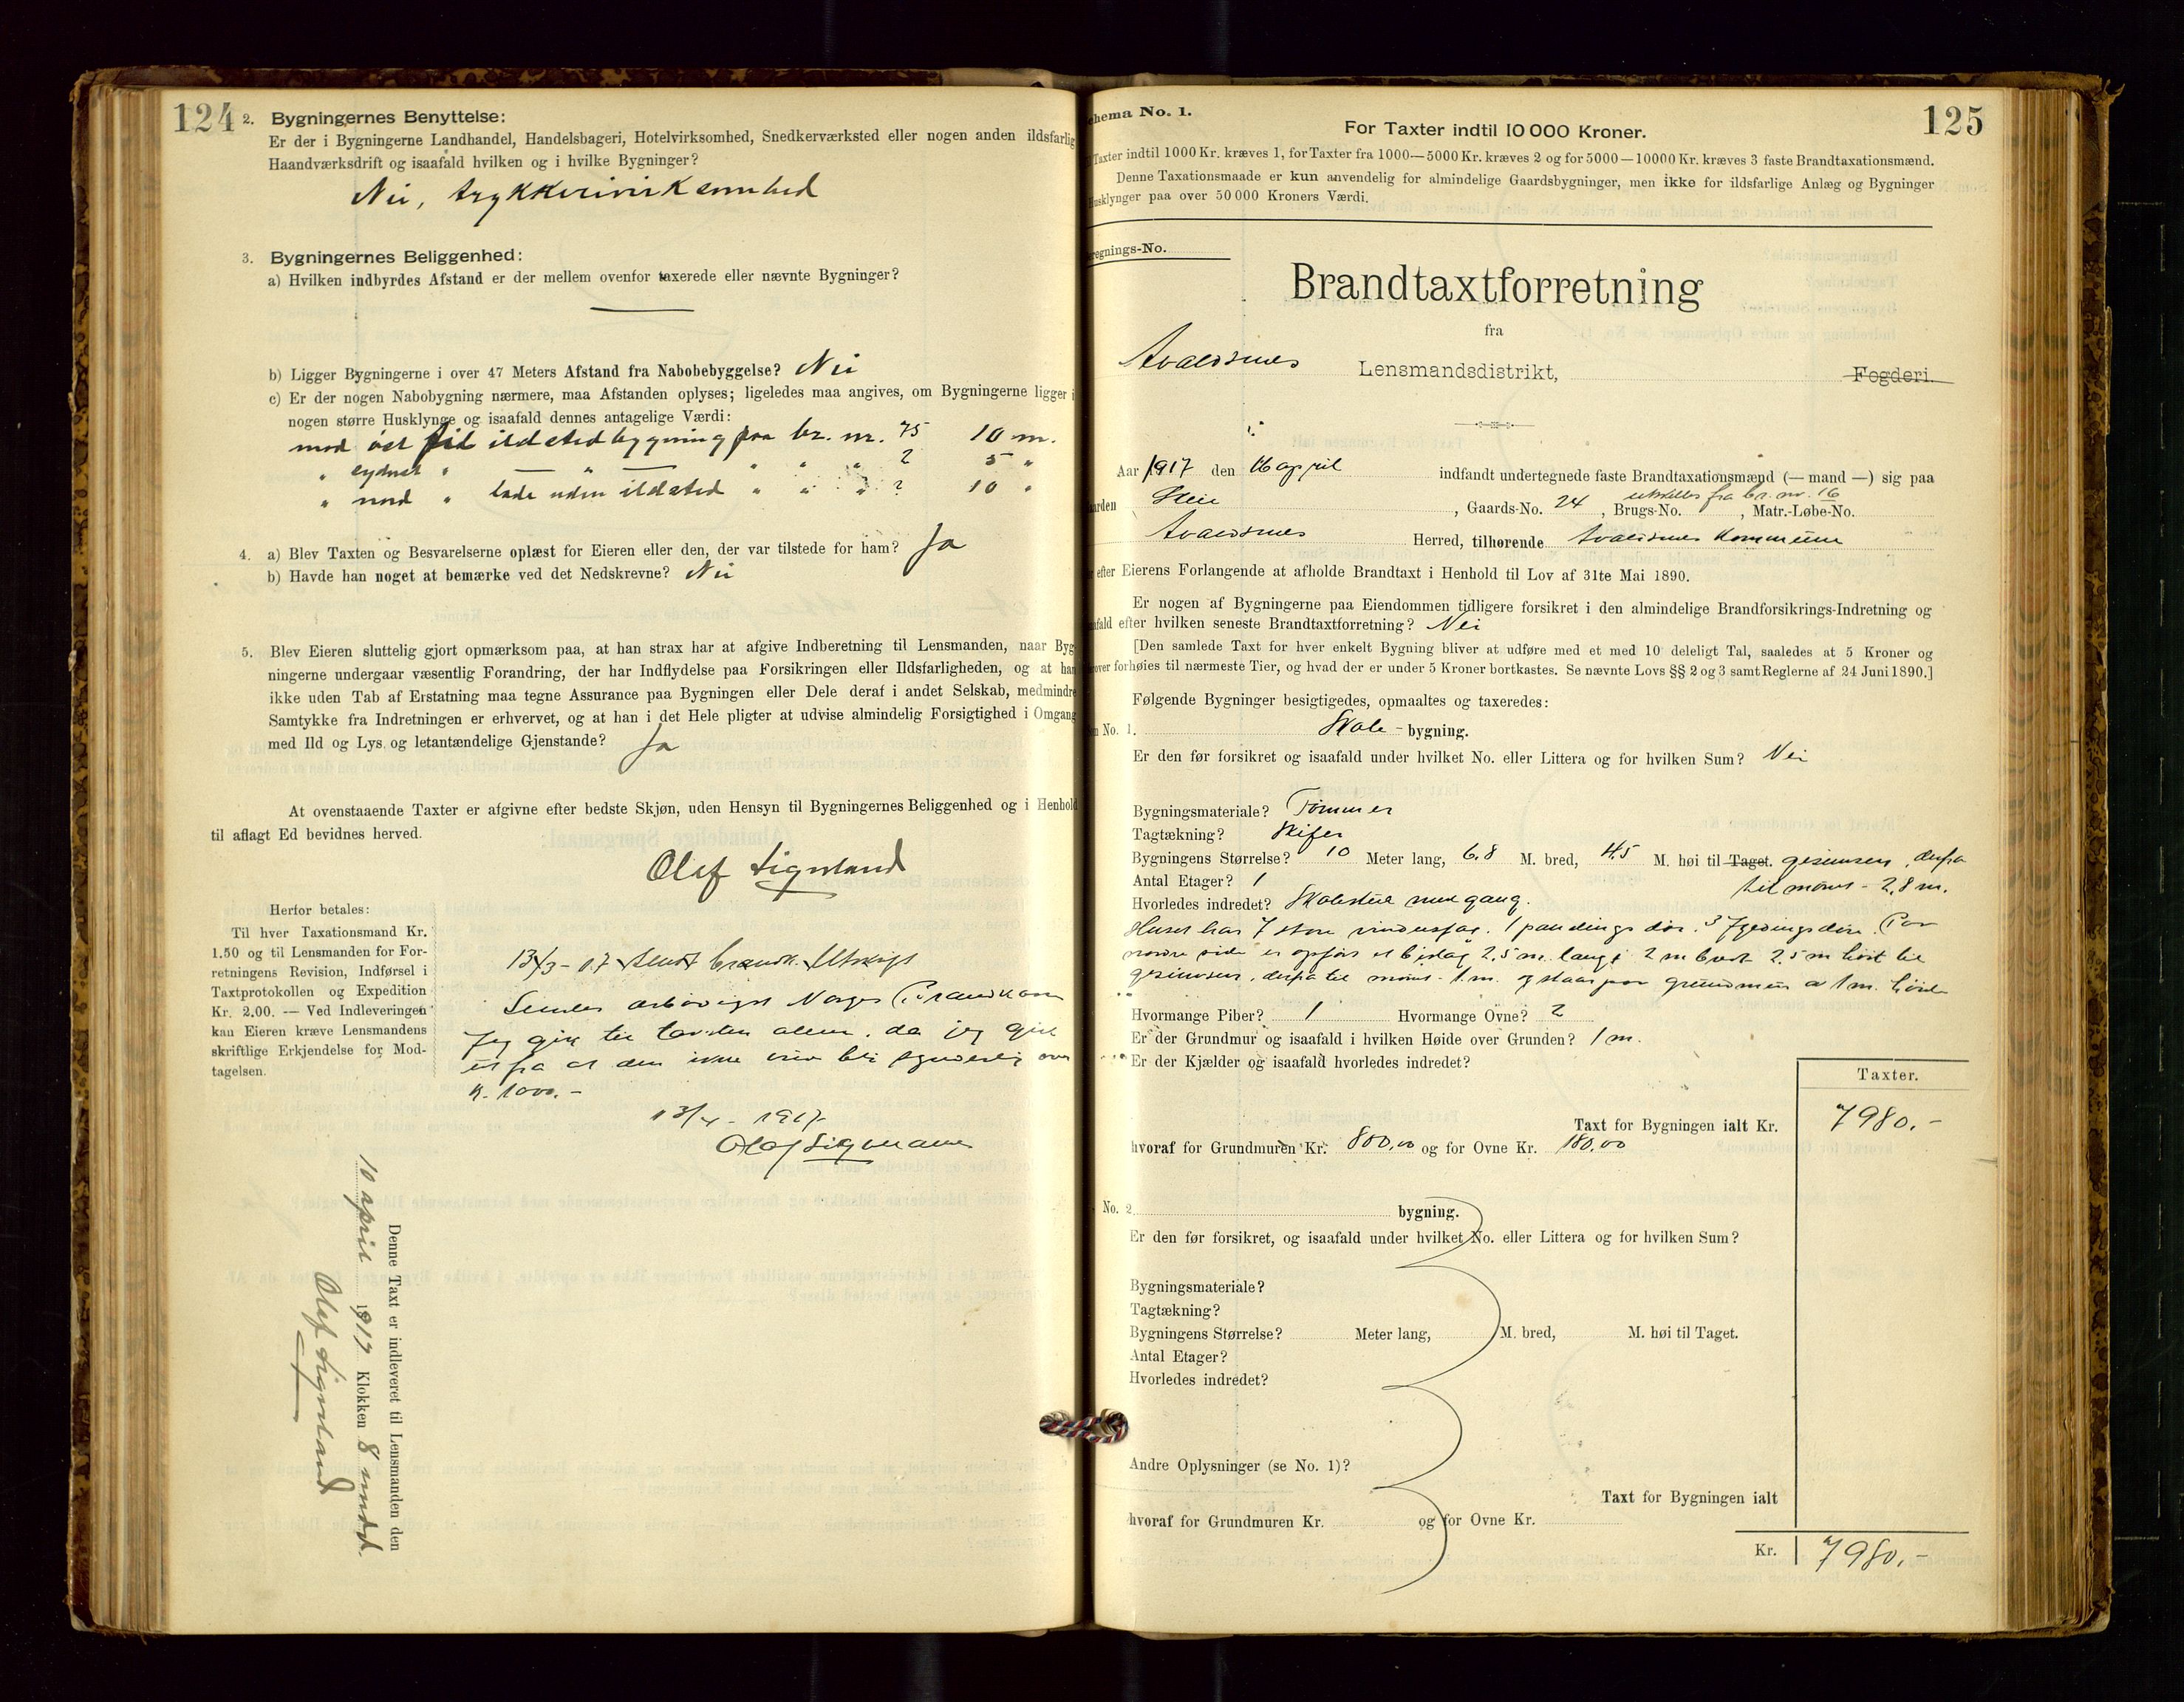 124
2. Bygningernes Benyttelse:
Er der i Bygningerne Landhandel, Handelsbageri, Hotelvirksomhed, Snedkerværksted eller nogen anden ildsfarlig
Haandværksdrift og isaafald hvilken og i hvilke Bygninger?
Nei, trykkerivirksomhed
3. Bygningernes Beliggenhed:
a) Hvilken indbyrdes Afstand er der mellem ovenfor taxerede eller nævnte Bygninger?
b) Ligger Bygningerne i over 47 Meters Afstand fra Nabobebyggelse? Nei
c) Er der nogen Nabobygning nærmere, maa Afstanden oplyses; ligeledes maa angives, om Bygningerne ligger i
nogen større Husklynge og isaafald dennes antagelige Værdi:
mod øst til ildstedbygning paa br. nr. 75 10 m.
" sydvest " — " — " " " 2 5 "
" nord " lade uden ildsted " " " ? 10 "
4. a) Blev Taxten og Besvarelserne oplæst for Eieren eller den, der var tilstede for ham? Ja
b) Havde han noget at bemærke ved det Nedskrevne? Nei
5. Blev Eieren sluttelig gjort opmærksom paa, at han strax har at afgive Indberetning til Lensmanden, naar Byg
ningerne undergaar væsentlig Forandring, der har Indflydelse paa Forsikringen eller Ildsfarligheden, og at han
ikke uden Tab af Erstatning maa tegne Assurance paa Bygningen eller Dele deraf i andet Selskab, medmindre
Samtykke fra Indretningen er erhvervet, og at han i det Hele pligter at udvise almindelig Forsigtighed i Omgang
med Ild og Lys og letantændelige Gjenstande? Ja
At ovenstaaende Taxter er afgivne efter bedste Skjøn, uden Hensyn til Bygningernes Beliggenhed og i Henhold
til aflagt Ed bevidnes herved.
Olaf Sigmund
Herfor betales:
Til hver Taxationsmand Kr.
1.50 og til Lensmanden for For-
retningens Revision, Indførsel i
Taxtprotokollen og Expedition
Kr. 2.00. — Ved Indleveringen
kan Eieren kræve Lensmandens
skriftlige Erkjendelse for Mod-
tagelsen.
Sendt brandk. Utskrift
Sendes ærbødigst Norges Brandkasse
Jeg gik til taxten alene, da jeg gik
ut fra at den ikke vilde bli synderlig over
K. 1000.-
13/4 - 1917
Olaf Sigmund
Denne Taxt er indleveret til Lensmanden den
10 april 1917 Klokken 8 middd.
Olaf Sigmund
125
chema No. 1.
For Taxter indtil 10 000 Kroner.
Taxter indtil 1000 Kr. kræves 1, for Taxter fra 1000—5000 Kr. kræves 2 og for 5000—10000 Kr. kræves 3 faste Brandtaxationsmænd.
Denne Taxationsmaade er kun anvendelig for almindelige Gaardsbygninger, men ikke for ildsfarlige Anlæg og Bygninger
Husklynger paa over 50 000 Kroners Værdi.
eregnings-No.
Brandtaxtforretning
fra
Avaldsnes Lensmandsdistrikt, Fogderi.
Aar 1917 den 16 april indfandt undertegnede faste Brandtaxationsmænd (— mand —) sig paa
aarden Stee, Gaards-No. 24, Brugs-No. utskilles fra br. nr. 16, Matr.-Løbe-No.
Avaldsnes Herred, tilhørende Avaldsnes kommune
efter Eierens Forlangende at afholde Brandtaxt i Henhold til Lov af 31te Mai 1890.
Er nogen af Bygningerne paa Eiendommen tidligere forsikret i den almindelige Brandforsikrings-Indretning og
afald efter hvilken seneste Brandtaxtforretning? Nei
[Den samlede Taxt for hver enkelt Bygning bliver at udføre med et med 10 deleligt Tal, saaledes at 5 Kroner og
over forhøies til nærmeste Tier, og hvad der er under 5 Kroner bortkastes. Se nævnte Lovs §§ 2 og 3 samt Reglerne af 24 Juni 1890.]
Følgende Bygninger besigtigedes, opmaaltes og taxeredes:
No. 1. Skole - bygning.
Er den før forsikret og isaafald under hvilket No. eller Littera og for hvilken Sum? Nei
Bygningsmateriale? Tømmer
Tagtækning? Skifer
Bygningens Størrelse? 10 Meter lang, 6,8 M. bred, 4,5 M. høi til Taget. gesimsen, derfra
til mønet - 2,8 m.
Antal Etager? 1
Hvorledes indredet? Skolestue med gang.
Huset har 7 store vinduesfag. 1 pandings dør. 3 fyldingsdøre. Paa
nordre side er opført et bislag 2,5 m. langt 2 m bredt 2,5 m høit til
gesimsen, derfra til mønet - 1 m. og staar paa grundmur a 1 m. høide
Hvormange Piber? 1 Hvormange Ovne? 2
Er der Grundmur og isaafald i hvilken Høide over Grunden? 1 m.
Er der Kjælder og isaafald hvorledes indredet?
Taxter.
Taxt for Bygningen ialt Kr. 7980.-
hvoraf for Grundmuren Kr. 800,00 og for Ovne Kr. 180,00
No. 2 bygning.
Er den før forsikret, og isaafald under hvilket No. eller Littera og for hvilken Sum?
Bygningsmateriale?
Tagtækning?
Bygningens Størrelse? Meter lang, M. bred, M. høi til Taget.
Antal Etager?
Hvorledes indredet?
Andre Oplysninger (se No. 1)?
Taxt for Bygningen ialt
hvoraf for Grundmuren Kr. og for Ovne Kr.
Kr. 7980.-